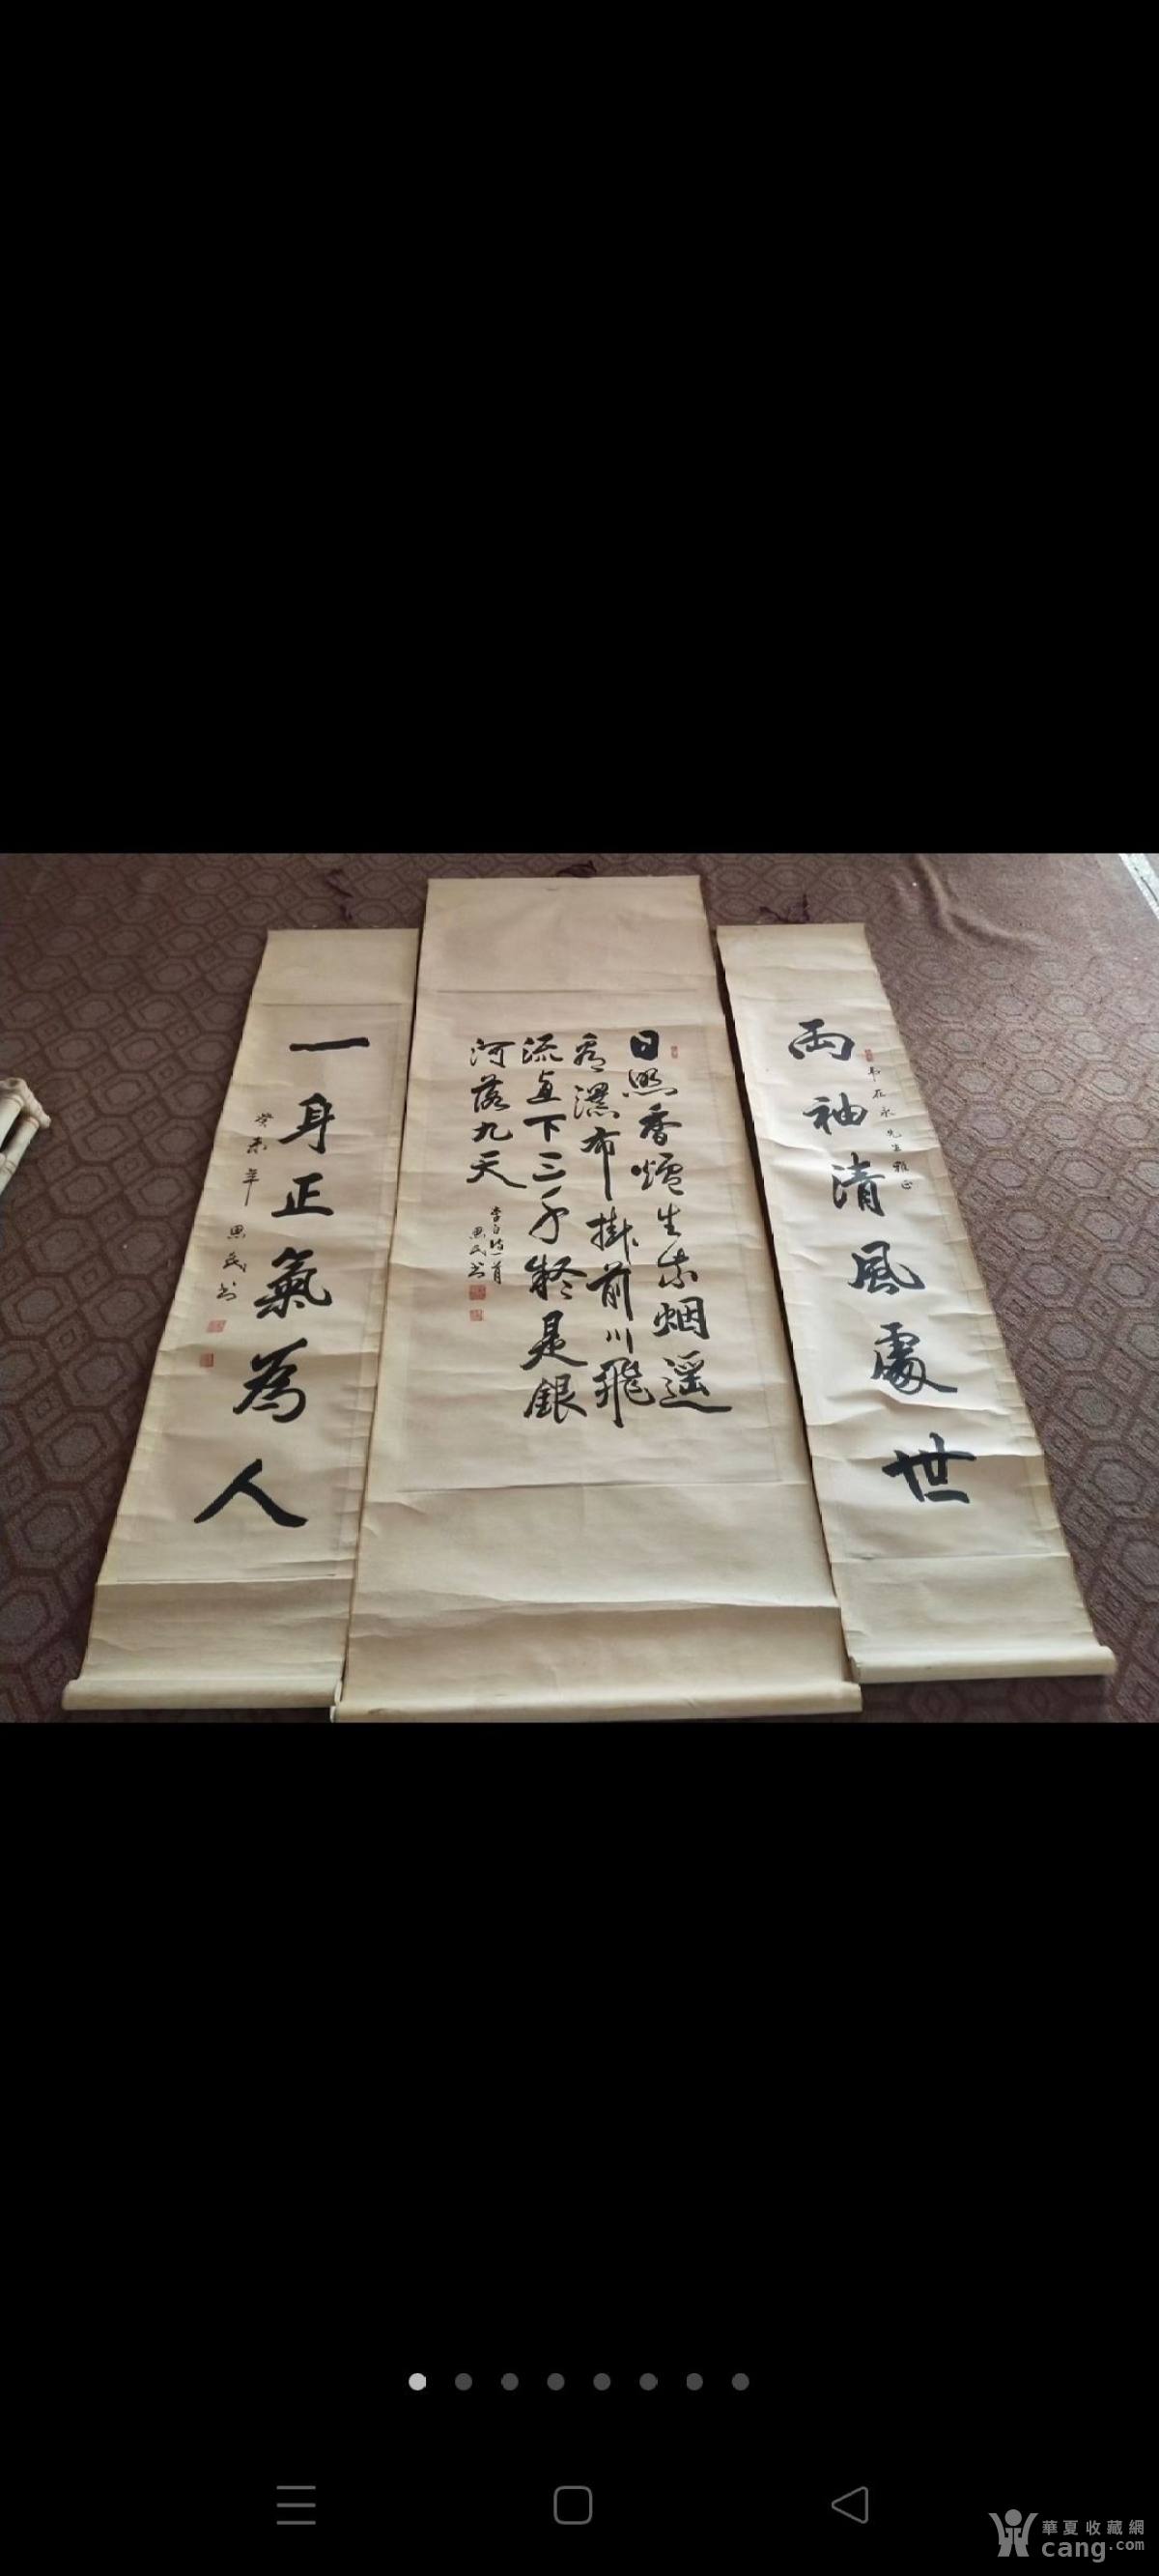 兩袖清風處世
韦在永先生雅正
日照香爐生紫烟遥
看瀑布掛前川飛
流直下三千疑是銀
河落九天
李白诗一首
思民书
一身正氣為人
癸未年 思民书
華夏收藏網
cang.com